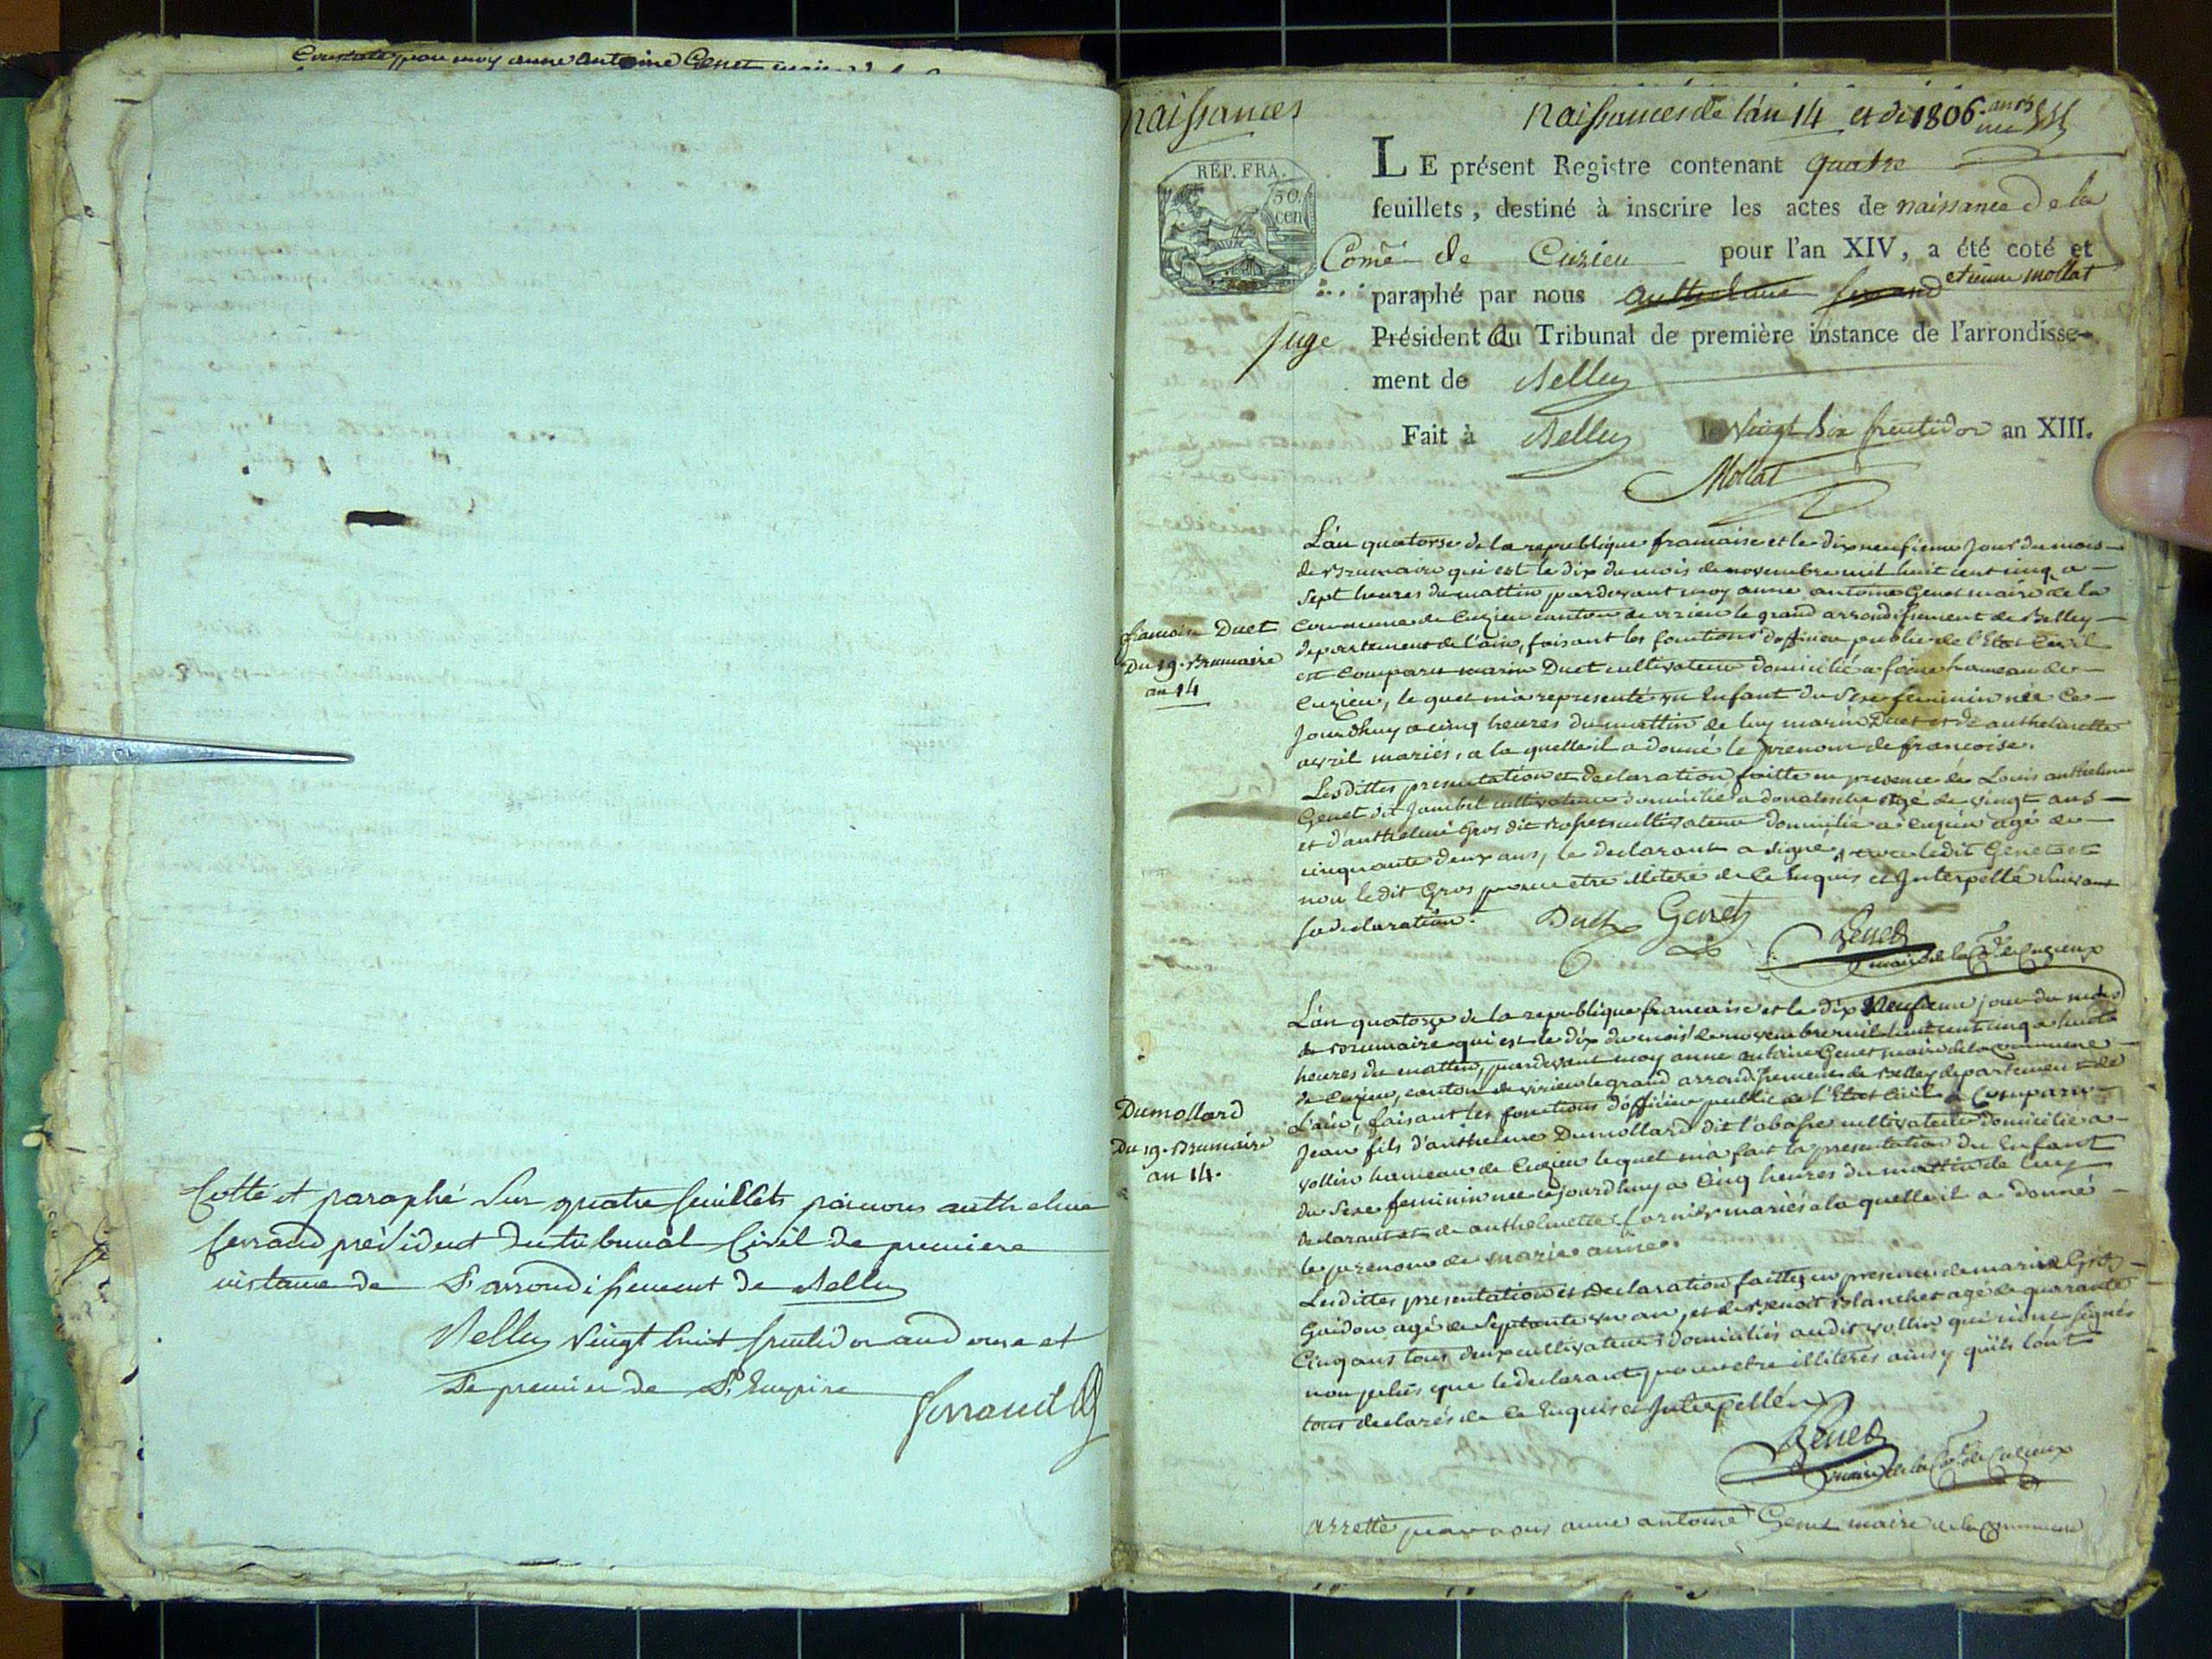 Constaté par moy anne antoine Genet
Cotté et paraphé sur quatre feuillets par nous anthelme
ferrand président du tribunal Civil de premiere
instance de L'arrondissement de Belley
Belley vingt huit fructidor an douze et
Le premier de L'Empire
ferrand
naissances
naissances de l'an 14 et de 1806
RÉP. FRA.
50
cen
LE présent Registre contenant quatre
feuillets, destiné à inscrire les actes de naissance de la
Come de Cuzieu pour l'an XIV, a été coté et
paraphé par nous anthelme ferrand etienne mollat
juge Président du Tribunal de première instance de l'arrondisse-
ment de Belley
Fait à Belley le vingt six fructidor an XIII.
Mollat
francoise Duet
Du 19. Brumaire
an 14
L'an quatorse de la republique francaise et le dix neufieme jour du mois
de Brumaire qui est le dix du mois de novembre mil huit cent cinq a
sept heures du mattin pardevant moy anne antoine Genet maire de la
Commune de Cuzieu canton de virieu le grand arrondissement de Belley
departement de l'ain, faisant les fonctions d'officier public de l'Etat Civil
est Comparu marin Duet cultivateur domicilié a hameau de
Cuzieu, le quel m'a representé un Enfant du Sexe feminin née ce
jourdhuy a cinq heures du mattin de luy marin Duet et de anthelmette
avril mariés, a la quelle il a donné le prenom de francoise.
Lesdittes presentation et declaration faitte en presence de Louis anthelme
Genet dit cultivateur domicilié a agé de vingt ans
et d'anthelme Gros dit cultivateur domicilié a Cuzieu agé de
cinquante deux ans, le declarant a signé avec ledit Genet et
non ledit Gros pour etre illiteré de ce Enquis et Interpellé suivant
sa declaration.
Duet Genet
Genet
maire de la Cne de Cuzieux
Dumollard
Du 19. Brumaire
an 14.
L'an quatorze de la republique francaise et le dix Neufieme jour du mois
de Brumaire qui est le dix du mois de novembre mil huit cent cinq a huit
heures du mattin, pardevant moy anne antoine Genet maire de la commune
de Cuzieu, canton de virieu le grand arrondissement de Belley departement de
L'ain, faisant les fonctions d'officier public de l'Etat Civil a Comparu
Jean fils d'anthelme Dumollard dit l'abasse cultivateur domicilié a
vollin hameau de Cuzieu lequel m'a fait la presentation du Enfant
du Sexe feminin née cejourdhuy a Cinq heures du mattin de luy
declarant et de anthelmette fornier mariés a la quelle il a donné
le prenom de marie anne.
Lesdittes presentation et declaration faittes en presence de marin Gros
Guidon agé de Septante un an, et de Benoit Blanchet agé de quarante
Cinq ans tous deux cultivateurs domiciliés audit vollin qui n'ont signés
non plus que le declarant pour etre illiterés ainsy qu'ils l'ont
tous declarés de ce Enquis et Interpellés
Genet
maire de la Cne de Cuzieux
arretté par nous anne antoine Genet maire de la commune